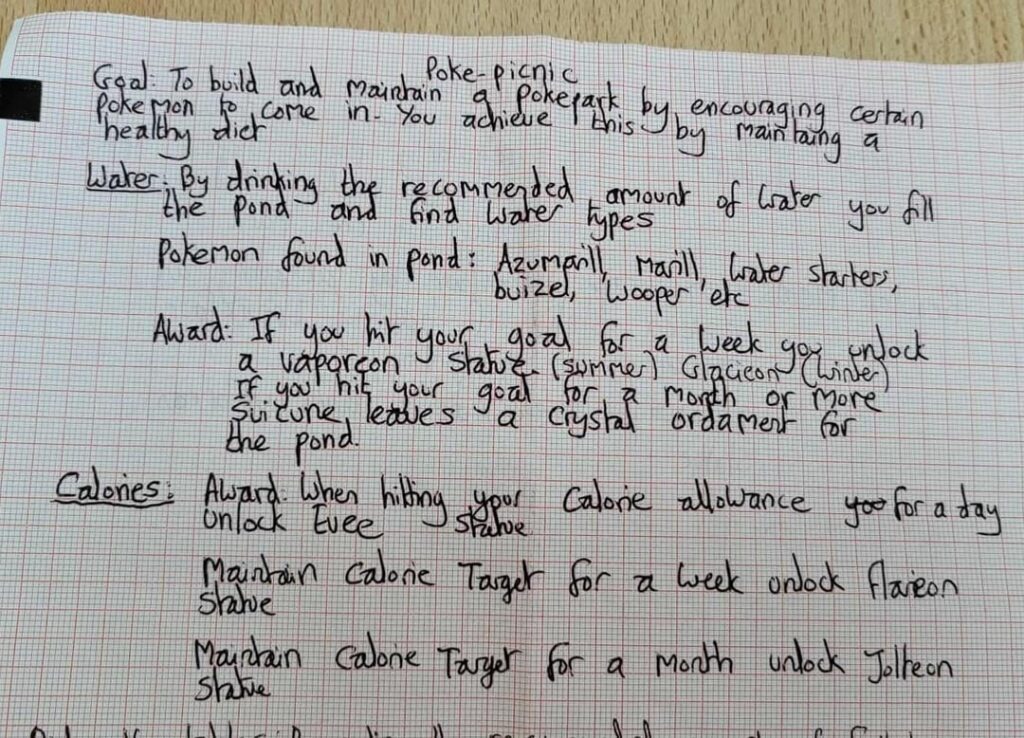 Poke-picnic
Goal: To build and maintain a Pokepark by encouraging certain
Pokemon to come in. You achieve this by maintaing a
healthy diet
Water: By drinking the recommended amount of water you fill
the pond and find water types
Pokemon found in pond: Azumarill, Marill, Water starters,
buizel, wooper etc
Award: If you hit your goal for a week you unlock
a vaporeon statue (summer) Glaceon (Winter)
If you hit your goal for a month or more
Suicune leaves a crystal ordament for
the pond.
Calories: Award: When hitting your Calorie allowance for a day
unlock Evee statue
Maintain Calorie Target for a week unlock flareon
statue
Maintain Calorie Target for a month unlock Jolteon
statue